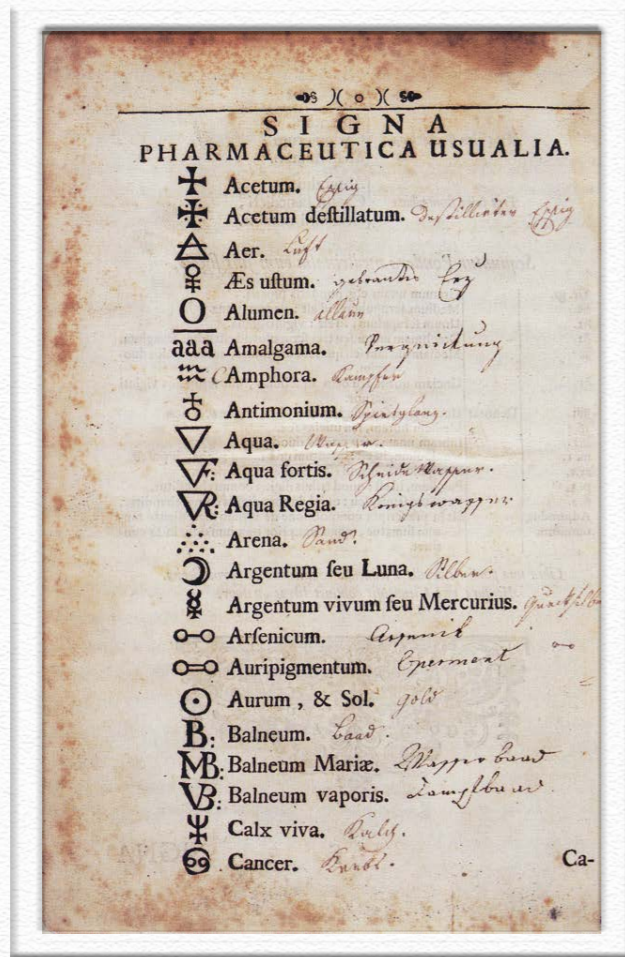 SIGNA
PHARMACEUTICA USUALIA.
Acetum. Eßig
Acetum deſtillatum. Destillirter Eßig
Aer. Luft
Æs uſtum. gebrantes Erz
O Alumen. allaun
aaa Amalgama. Verquickung
CAmphora. Kampfer
Antimonium. Spiesglanz.
Aqua. Wasser.
F: Aqua fortis. Scheide Wasser.
R: Aqua Regia. Königswasser
Arena. Sand.
Argentum ſeu Luna. Silber.
Argentum vivum ſeu Mercurius. Queckſilb
Arſenicum. Arsenik
Auripigmentum. Operment
Aurum, & Sol. Gold
B: Balneum. Baad.
MB: Balneum Mariæ. Wasserbaad
VB: Balneum vaporis. Dampfbaad.
Calx viva. Kalch.
Cancer. Krebs.
Ca-